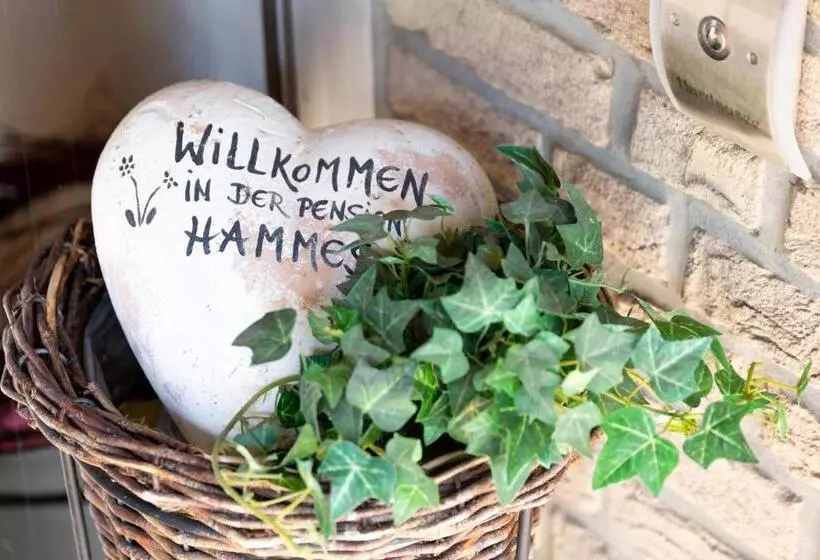 WiLLKOMMEN
IN DER PENSION
HAMMES